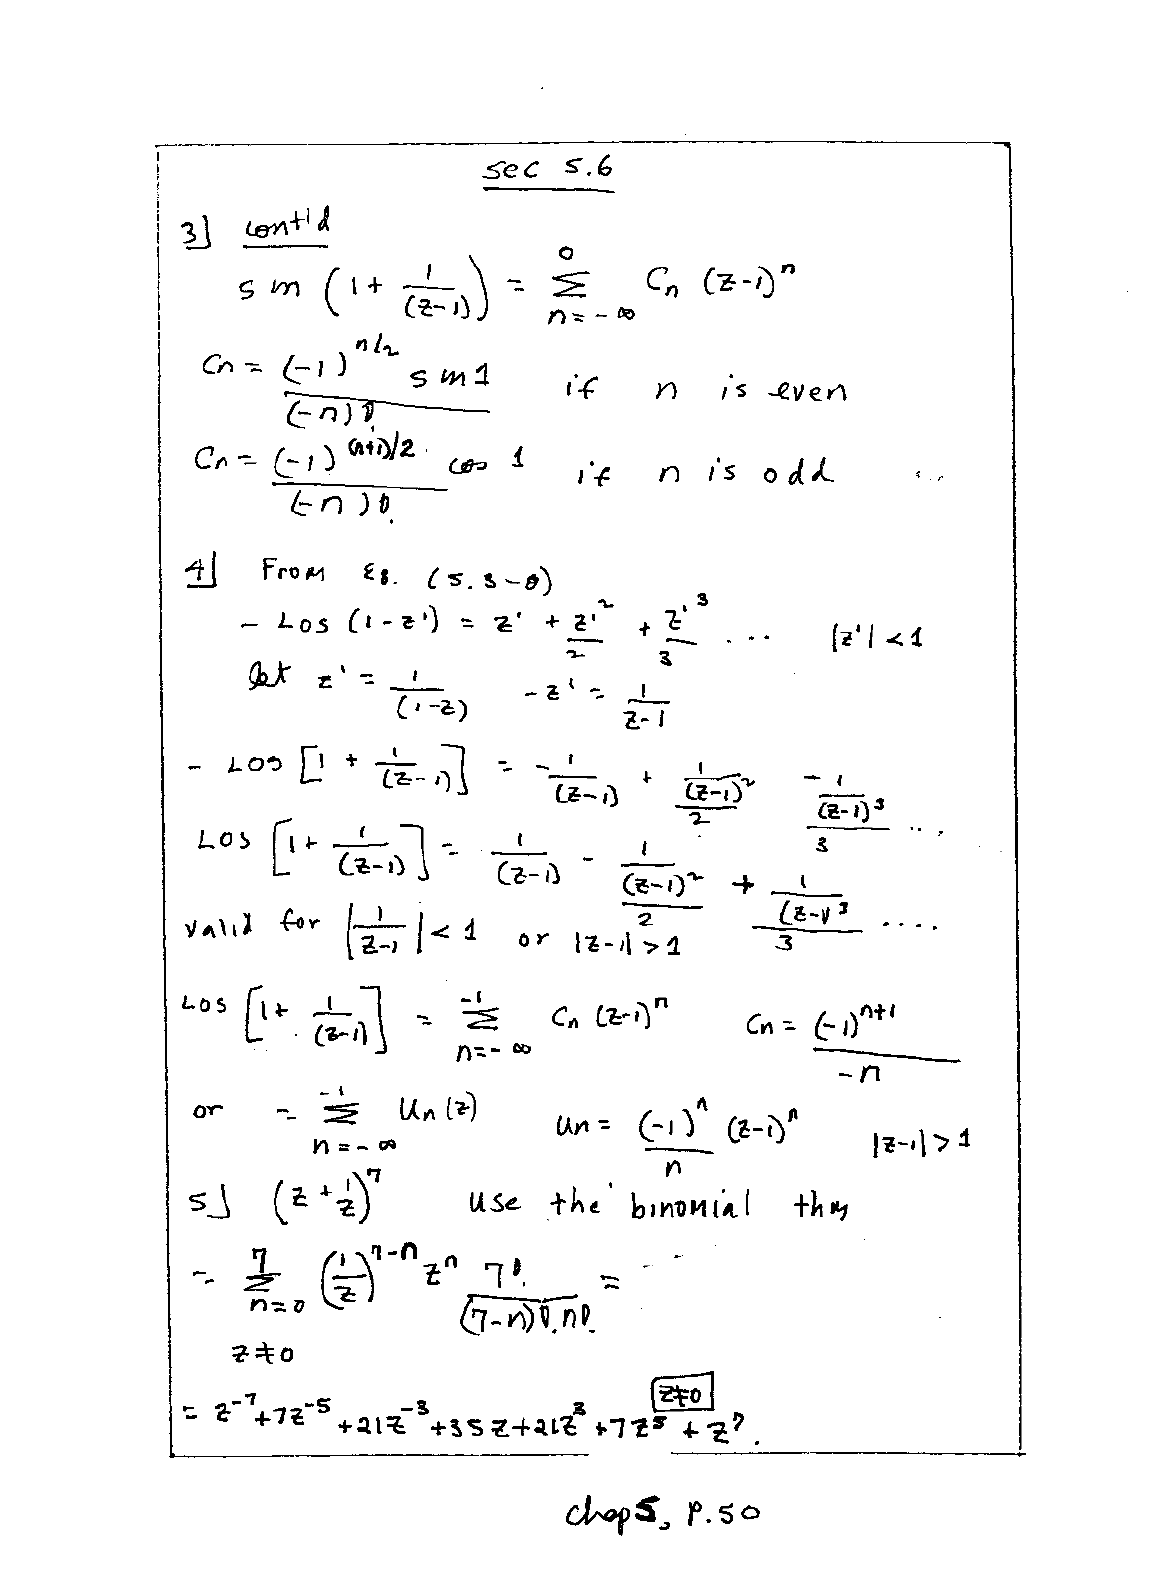 sec 5.6
3] cont'd
sin (1 + 1/(z-1)) = Σ_{n=-∞}^{0} Cn (z-1)^n
Cn = (-1)^{n/2} sin 1 / (-n)! if n is even
Cn = (-1)^{(n+1)/2} cos 1 / (-n)! if n is odd
4] From Eq. (5.3-8)
- Log (1-z') = z' + z'^2/2 + z'^3/3 ... |z'| < 1
let z' = 1/(1-z) -z' = 1/(z-1)
- Log [1 + 1/(z-1)] = -1/(z-1) + 1/(z-1)^2/2 - 1/(z-1)^3/3 ...
Log [1 + 1/(z-1)] = 1/(z-1) - 1/(z-1)^2/2 + 1/(z-1)^3/3 ....
valid for |1/(z-1)| < 1 or |z-1| > 1
Log [1 + 1/(z-1)] = Σ_{n=-∞}^{-1} Cn (z-1)^n Cn = (-1)^{n+1}/-n
or = Σ_{n=-∞}^{-1} Un(z) Un = (-1)^n/n (z-1)^n |z-1| > 1
5] (z + 1/z)^7 Use the binomial thm
= Σ_{n=0}^{7} (1/z)^{7-n} z^n 7!/((7-n)! n!) =
z≠0
z≠0
= z^-7 + 7z^-5 + 21z^-3 + 35z + 21z^3 + 7z^5 + z^7.
chap 5, p.50